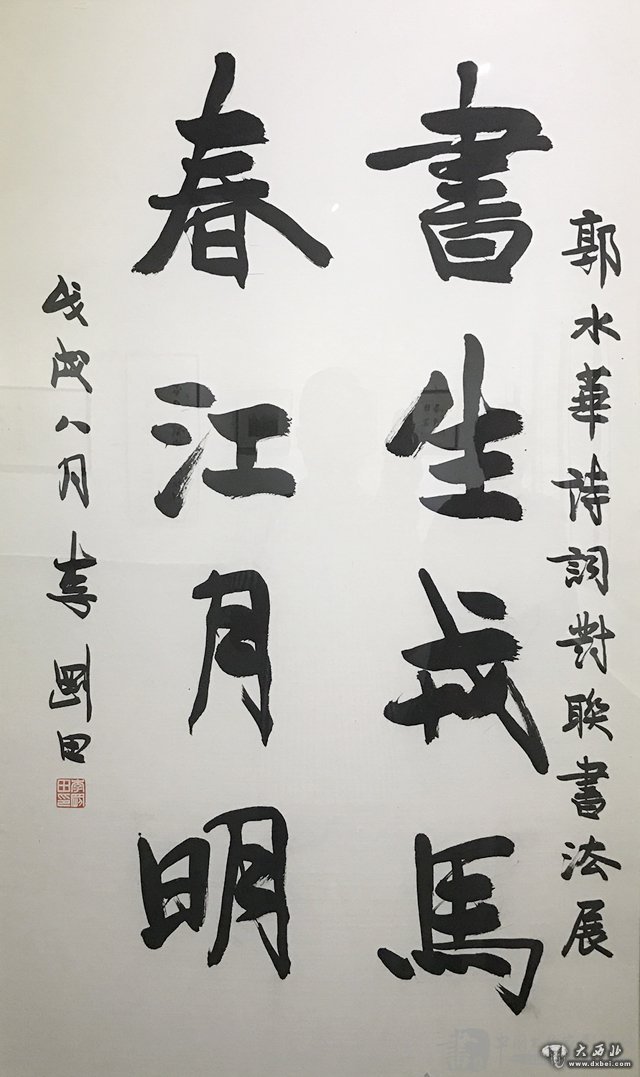 郭水華詩詞對聯書法展
書生戎馬
春江月明
戊戌八月李剛田
大西北
www.dxbei.com